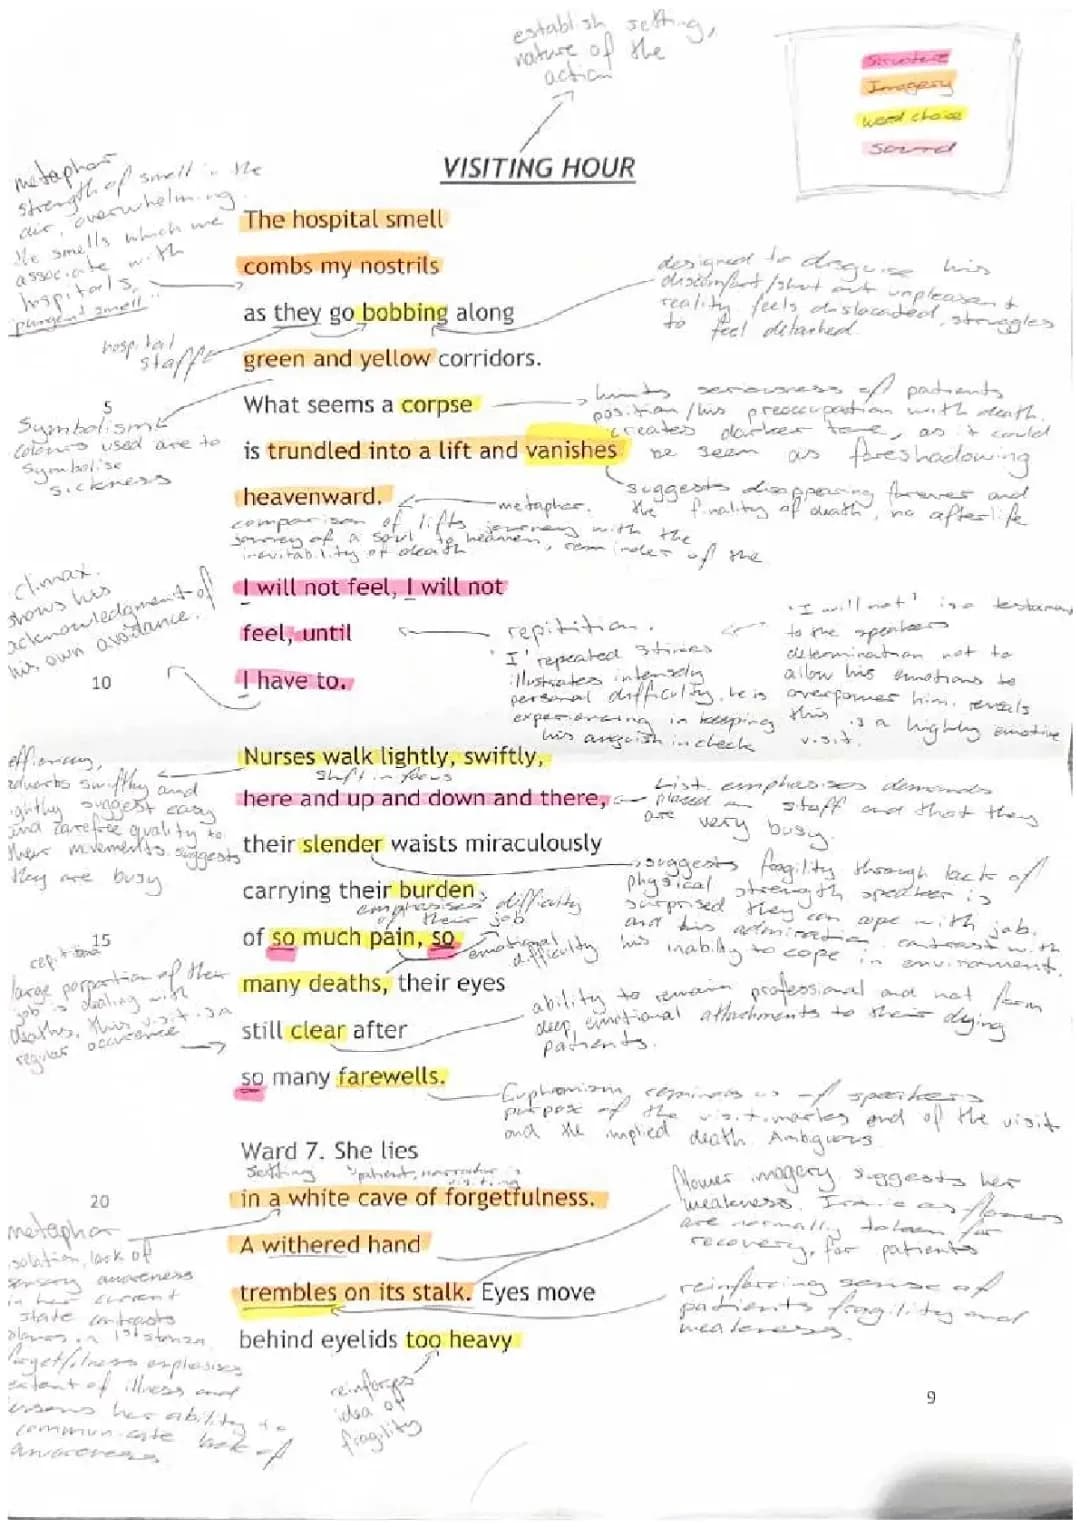 establish setting,
nature of the
action
Structure
Imagery
word choice
Sound
VISITING HOUR
metaphor
strength of smell in the
air, overwhelming.
the smells which we
associate with
hospitals,
"pungent smell"
The hospital smell
combs my nostrils
as they go bobbing along
green and yellow corridors.
designed to disguise his
discomfort/shut out unpleasant
reality feels dislocated, struggles
to feel detached.
hospital
staff
5
What seems a corpse
is trundled into a lift and vanishes
heavenward.
Symbolism
colours used are to
symbolise
sickness
hints seriousness of patients
position/his preoccupation with death.
creates darker tone, as it could
be seen as foreshadowing
suggests disappearing forever and
the finality of death, no afterlife
metaphor.
comparison of lifts journey with the
journey of a soul to heaven, reminder of the
inevitability of death
climax.
shows his
acknowledgment of
his own avoidance.
I will not feel, I will not
feel, until
10
I have to.
repitition.
'I' repeated 3 times
illustrates intensely
personal difficulty he is
experiencing in keeping
his anguish in check
'I will not' is a
to the speakers
determination not to
allow his emotions to
overpower him. reveals
this is a highly emotive
visit.
Nurses walk lightly, swiftly,
shift in focus
here and up and down and there,
their slender waists miraculously
carrying their burden
efficiency,
adverbs swiftly and
lightly suggest easy
and carefree quality to
their movements. suggests
they are busy
List emphasises demands
placed on staff and that they
are very busy.
suggests fragility through lack of
physical strength speaker is
surprised they can cope with job.
and his admiration, contrast with
his inability to cope in environment.
emphasises difficulty
of their job
15
of so much pain, so
emotional
difficulty
many deaths, their eyes
still clear after
so many farewells.
repitition
large porportion of their
job is dealing with
deaths, this visit is a
regular occurence
ability to remain professional and not form
deep, emotional attachments to their dying
patients.
Euphemism, reminds us of speakers
purpose of the visit. marks end of the visit
and the implied death. Ambiguous
Ward 7. She lies
setting
patient, narrator is
visiting
20
in a white cave of forgetfulness.
A withered hand
trembles on its stalk. Eyes move
behind eyelids too heavy
flower imagery suggests her
weakness. Ironic as flowers
are normally taken for
recovery, for patients
reinforcing sense of
patients fragility and
weakness.
metaphor
isolation, lack of
sensory awareness
in her current
state contrasts
in 1st stanza
forgetfulness emphasises
extent of illness and
her ability to
communicate lack of
awareness
reinforces
idea of
fragility
9